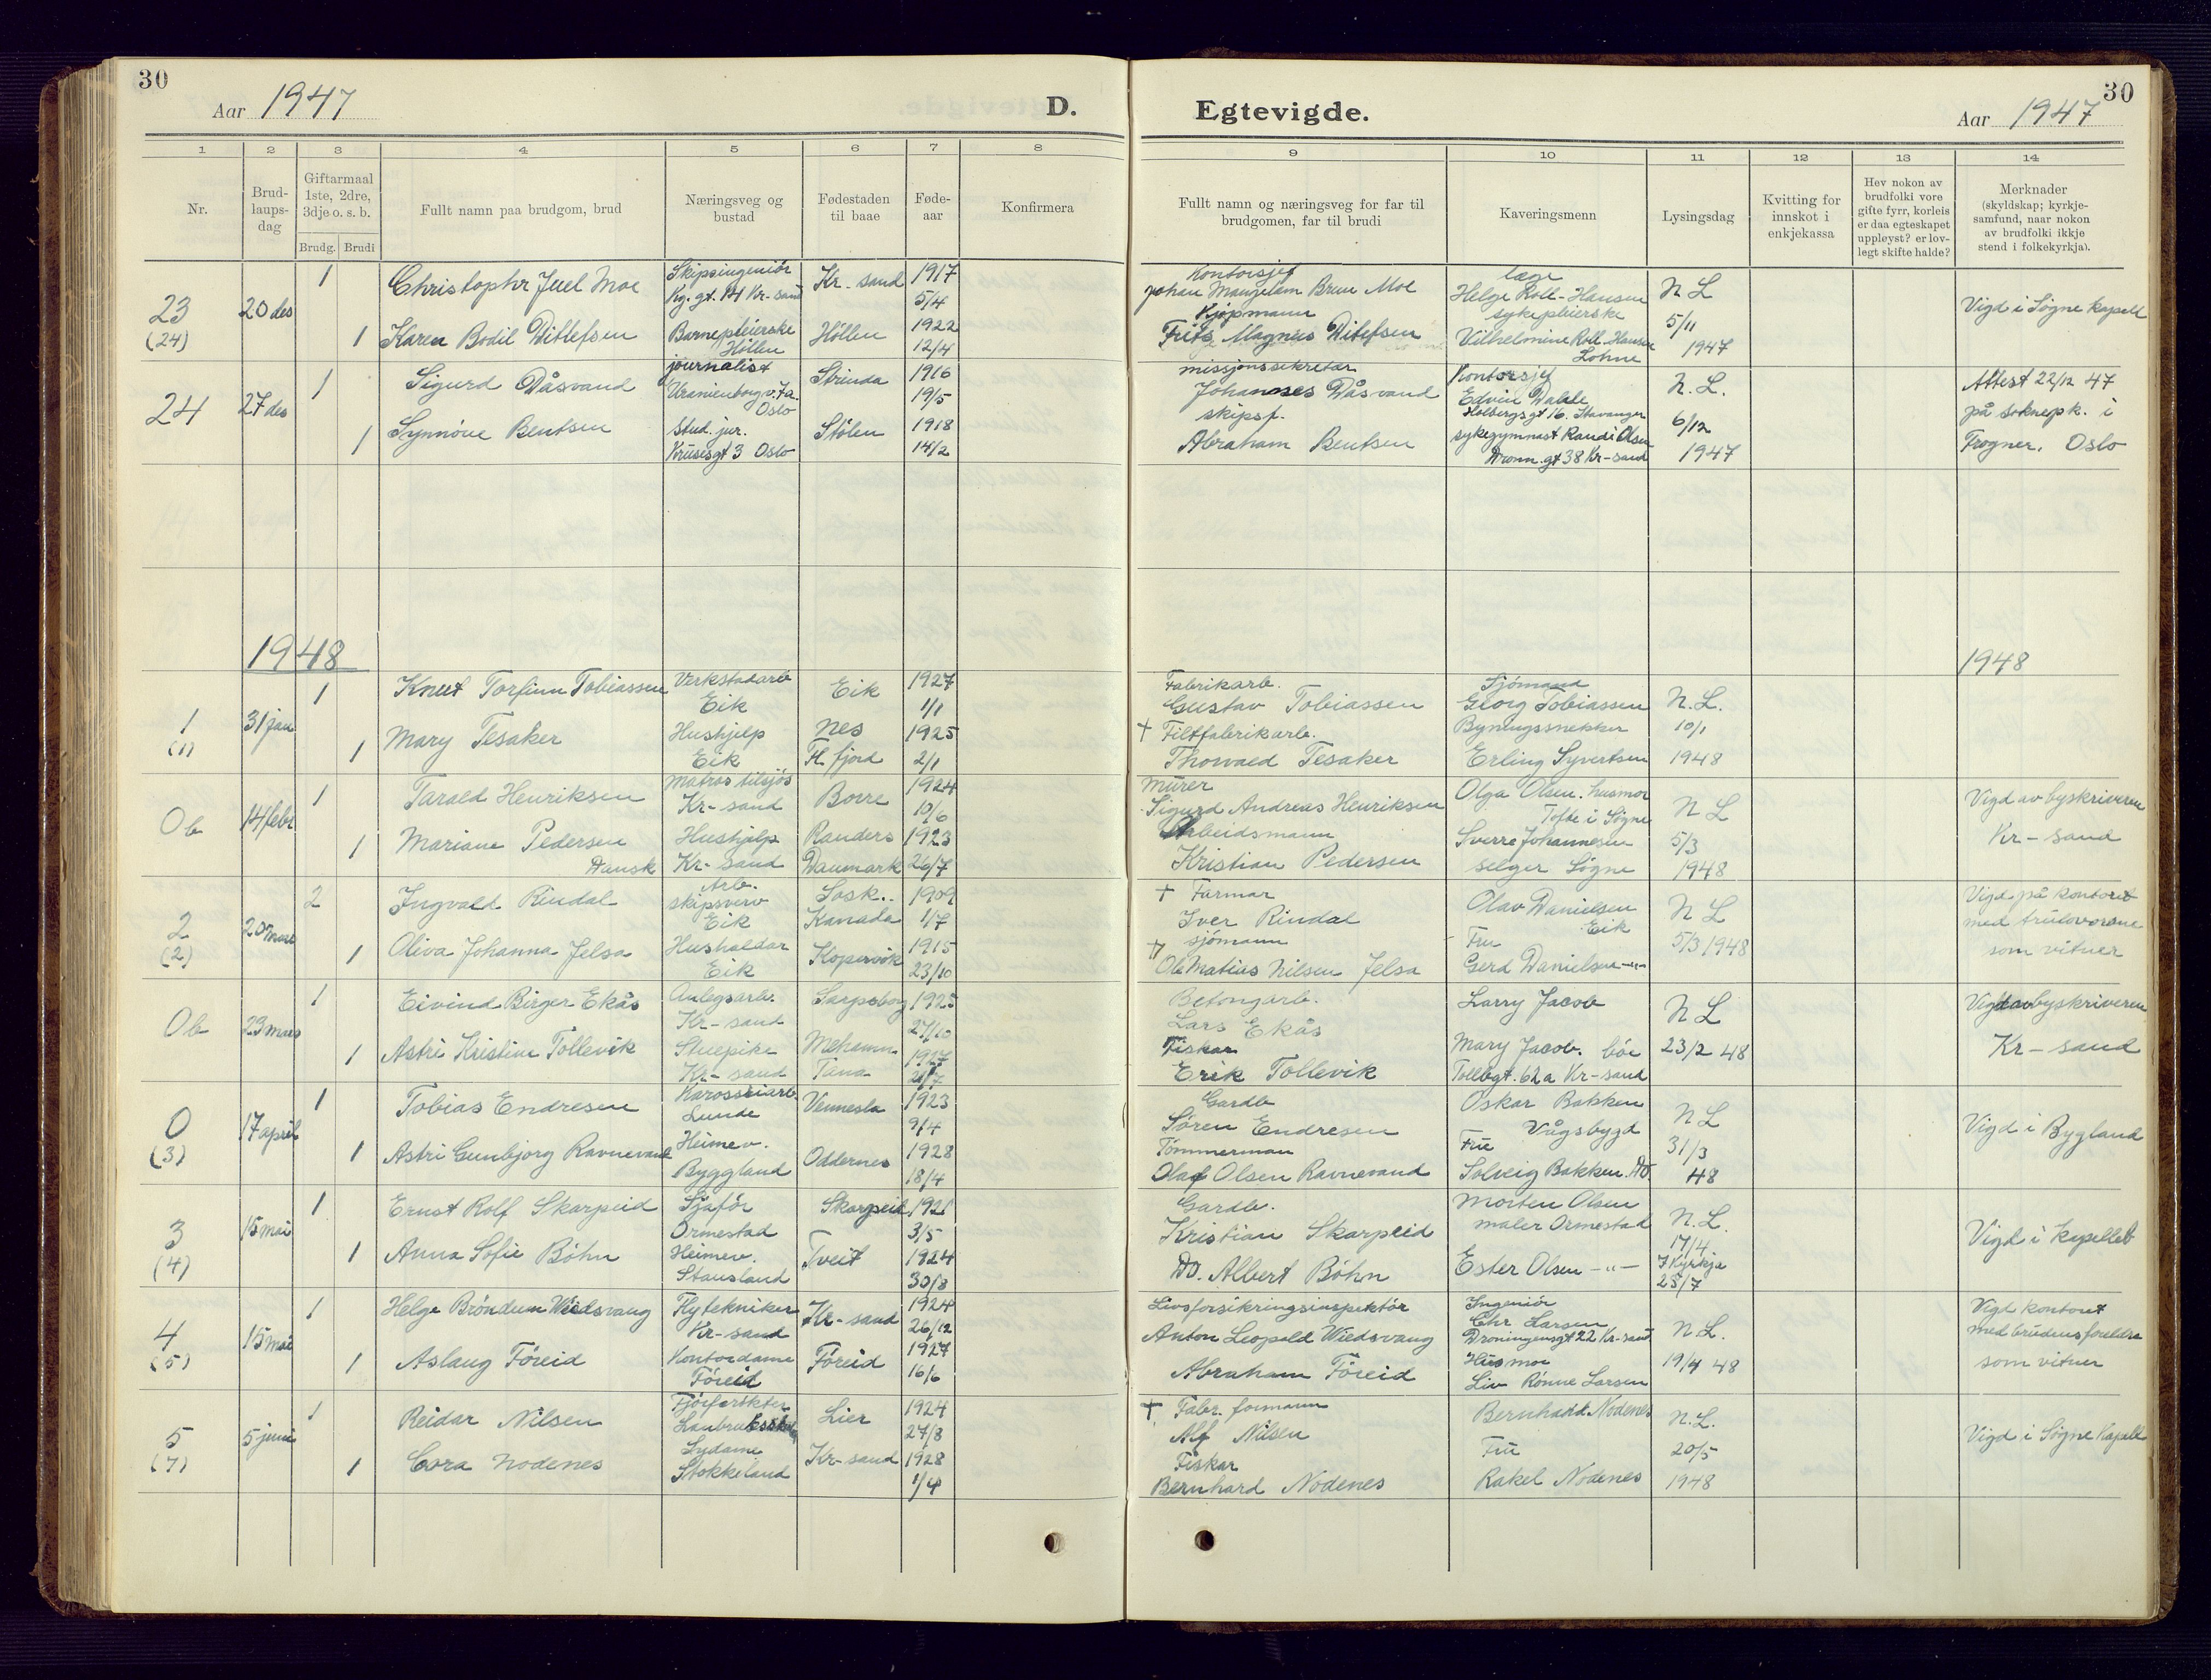 30
Aar 1947
D.
Egtevigde.
30
Aar 1947
1
2
3
4
5
6
7
8
9
10
11
12
13
14
Nr.
Brud-
laups-
dag
Giftarmaal
1ste, 2dre,
3dje o. s. b.
Brudg.
Brudi
Fullt namn paa brudgom, brud
Næringsveg og
bustad
Fødestaden
til baae
Føde-
aar
Konfirmera
Fullt namn og næringsveg for far til
brudgomen, far til brudi
Kaveringsmenn
Lysingsdag
Kvitting for
innskot i
enkjekassa
Hev nokon av
brudfolki vore
gifte fyrr, korleis
er daa egteskapet
uppløyst? er lov-
legt skifte halde?
Merknader
(skyldskap; kyrkje-
samfund, naar nokon
av brudfolki ikkje
stend i folkekyrkja).
23
(24)
20 des
1
Christopher Juel Moe
Skipsingeniør
Kg. gt. 14 Kr-sand
Kr.-sand
1917
5/4
1
Karen Bodil Ditlefsen
Barnepleierske
Høllen
Høllen
1922
12/4
Kontorsjef
Johan Mangelsen Bruu Moe
Kjøpmann
Frits Magnus Ditlefsen
læge
Helge Roll-Hansen
sykepleierske
Vilhelmine Roll-Hansen
Lohne
N L
5/11
1947
Vigd i Søgne kapell
24
27 des
1
Sigurd Dåsvand
journalist
Uranienborgv. 7a.
Oslo
Strinda
1916
19/5
1
Synnöve Bentsen
Stud. jur.
Krusesgt 3 Oslo
Stölen
1918
14/2
missjonssekretær
Johannes Dåsvand
skipsf.
Abraham Bentsen
Kontorsjef
Edvin Dahle
Holbergsgt 16. Stavanger
sykegymnast Randi Olsen
Dronn. gt 38 Kr-sand
N. L.
6/12
1947
Attest 22/12 47
på soknepk. i
Frogner, Oslo
1948
1948
1
(1)
31 jan
1
Knut Torfinn Tobiassen
Verkstadarb
Eik
Eik
1927
1/1
1
Mary Tesaker
Hushjelp
Eik
Nes
Fl. fjord
1925
2/1
Fabrikarb.
Gustav Tobiassen
† Filtfabrikarb.
Thorvald Tesaker
Sjömand
Georg Tobiassen
Bygningssnekker
Erling Syvertsen
N. L.
10/1
1948
Ob
14 febr
1
Tarald Henriksen
Matros tilsjøs
Kr-sand
Borre
1924
10/6
1
Mariane Pedersen
Dansk
Hushjelp
Kr-sand
Randers
Danmark
1923
26/7
Murer
Sigurd Andreas Henriksen
Arbeidsmann
Kristian Pedersen
Olga Olsen. husmor
Tofte i Søgne
Sverre Johannesen
selger Søgne
N L
5/3
1948
Vigd av byskriveren
Kr-sand
2
(2)
20 mars
2
Ingvald Rindal
Arb.
skipsverv
Eik
Sask..
Kanada
1909
1/7
1
Oliva Johanna Jelsa
Husholdar
Eik
Kopervik
1915
23/10
† Farmar
Iver Rindal
† sjömann
Ole Matias Nilsen Jelsa
Olav Danielsen
Eik
Fru
Gerd Danielsen -"-
N L
5/3 1948
Vigd på kontoret
med trulovarane
som vitner
Ob
23 mars
1
Eivind Birger Ekås
Anlegsarb.
Kr-sand
Sarpsborg
1925
27/10
1
Astri Kristine Tollevik
Stuepike
Kr-sand
Mehamn
Tana
1927
Betongarb.
Lars Ekås
Fiskar
Erik Tollevik
Larry Jacob
Mary Jacob. böe
Tollbgt. 62a Kr-sand
N L
23/2 48
Vigd av byskriveren
Kr-sand
0
(3)
17 april
1
Tobias Endresen
Karosseriarb
Lunde
Vennesla
1923
9/4
1
Astri Gunbjorg Ravnevand
Heimev.
Byggland
Oddernes
1928
18/4
Gardb
Søren Endresen
Tömmerman
Olaf Olsen Ravnevand
Oskar Bakken
Vågsbygd
Fru
Solveig Bakken. Do.
N L
31/3
48
Vigd i Bygland
3
(4)
15 mai
1
Ernst Rolf Skarpeid
Sjåför
Ormestad
Skarpeid
1921
3/5
1
Anna Sofie Böhn
Heimev.
Stausland
Tveit
1924
30/8
Gardb.
Kristian Skarpeid
Do. Albert Böhn
Morten Olsen
maler Ormestad
Ester Olsen -"-
N. L.
17/4
I Kyrkja
25/7
Vigd i kapellet
4
(5)
15 mai
1
Helge Bröndum Wiedsvang
Flytekniker
Kr-sand
Kr-sand
1924
26/12
1
Aslaug Föreid
Kontordame
Föreid
Föreid
1927
16/6
Livsforsikringsinspektör
Anton Leopold Wiedsvang
Abraham Föreid
Ingeniör
Chr Larsen
Droningensgt 22 Kr-sand
Husmor
Liv Rönne Larsen
N L.
19/4 48
Vigd kontoret
med brudens foreldre
som vitner
5
(7)
5 juni
1
Reidar Nilsen
Lier
1924
27/8
1
Cora Nodenes
Sydame
Stokkeland
Kr-sand
1928
1/4
† Fabr. formann
Alf Nilsen
Fiskar
Bernhard Nodenes
Bernhard Nodenes
Fru
Rakel Nodenes
N. L.
20/5
1948
Vigd i Søgne Kapell